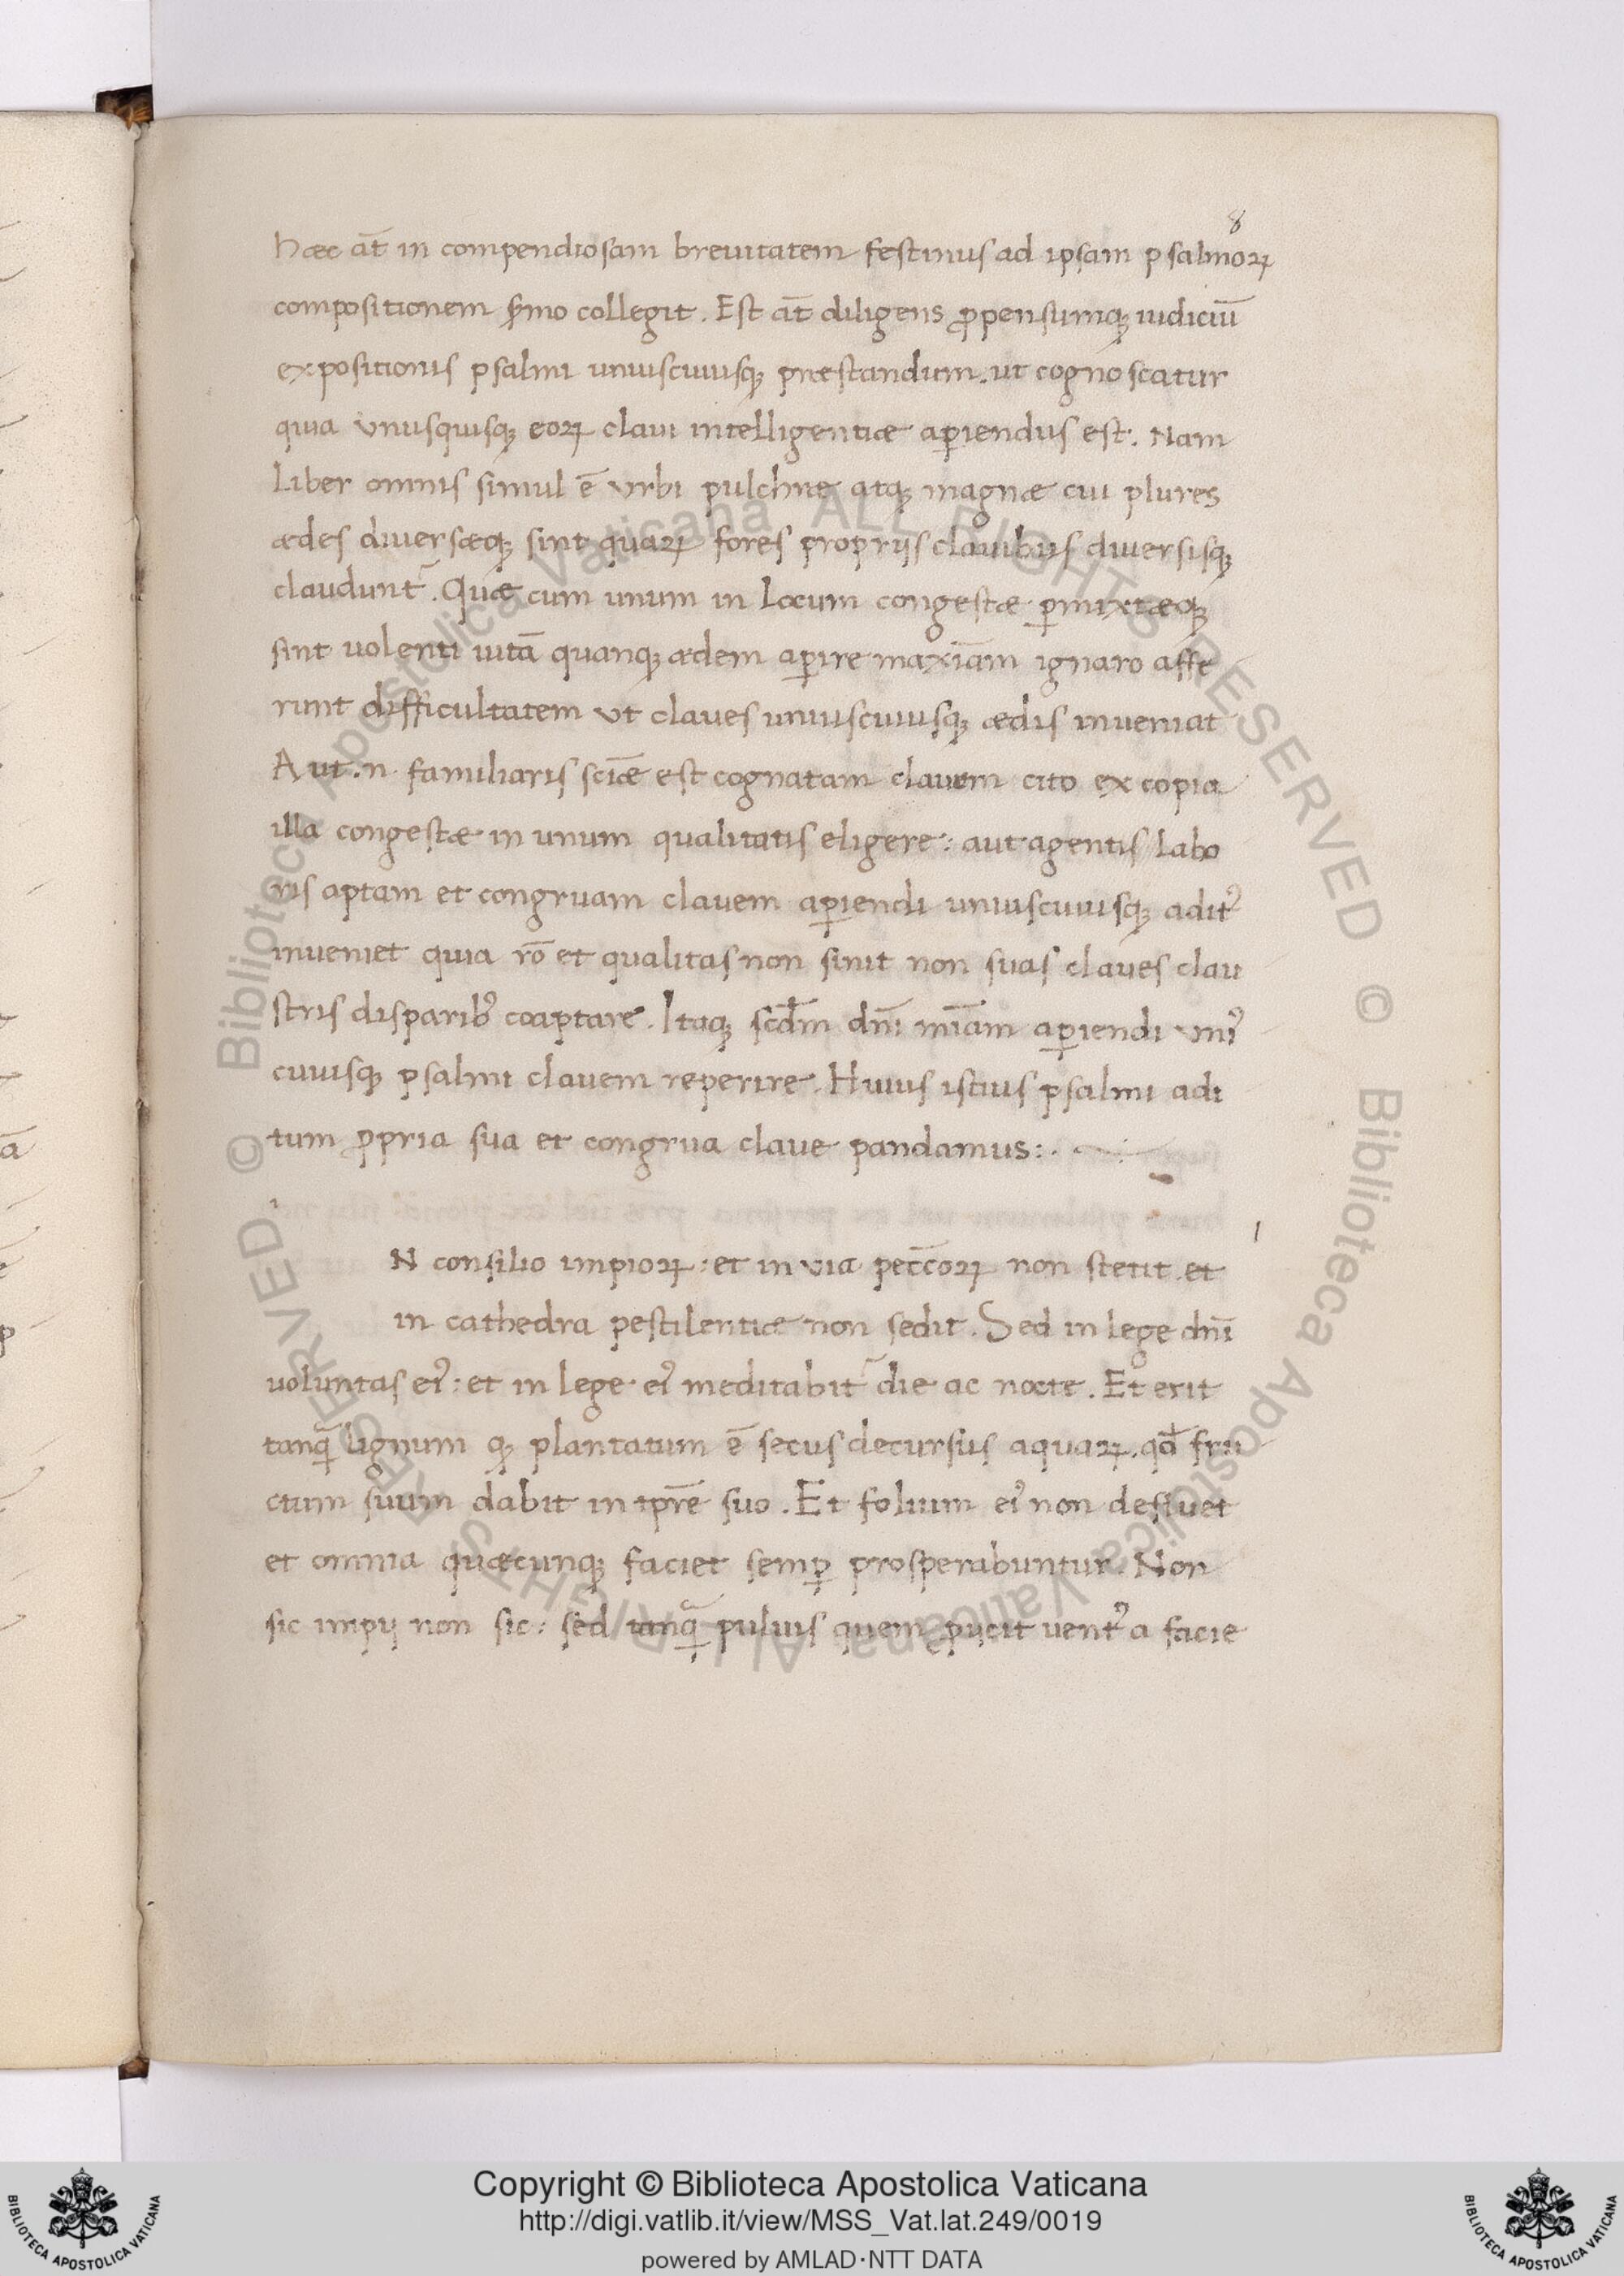 8
hæc at̄ in compendiosam breuitatem festinus ad ipsam psalmoꝝ
compositionem s̄mo collegit. Est at̄ diligens ꝓpensumqꝫ iudiciū
expositionis psalmi uniuscuiusqꝫ præstandum. ut cognoscatur
quia vnusquisqꝫ eoꝝ claui intelligentiæ aꝑiendus est. Nam
Liber omnis simul ē vrbi pulchræ atqꝫ magnæ cui plures
ædes diuersæqꝫ sint quaꝝ fores proprijs clauibus diuersisqꝫ
claudunt᷑. Quæ cum unum in Locum congestæ ꝑmixtæqꝫ
sint uolenti uitā quanqꝫ ædem aꝑire maxīam ignaro affe
runt difficultatem vt claues uniuscuiusqꝫ ædis inueniat
Aut .n. familiaris scīæ est cognatam clauem cito ex copia
illa congestæ in unum qualitatis eligere: aut agentis labo
ris aptam et congruam clauem aꝑiendi uniuscuiusqꝫ aditꝰ
inueniet quia rō et qualitas non sinit non suas claues clau
stris disparibꝰ coaptare. Itaqꝫ scd̄m dn̄i mīam aꝑiendi vniꝰ
cuiusqꝫ psalmi clauem reperire. Huius istius psalmi adi
tum ꝓpria sua et congrua claue pandamus:.
1
N consilio impioꝝ: et in via pec̄coꝝ non stetit et
in cathedra pestilentiæ non sedit. Sed in lege dn̄i
uoluntas eiꝰ: et in lege eiꝰ meditabit᷑ die ac nocte. Et erit
tanꝗ̄ lignum qꝫ plantatum ē secus decursus aquaꝝ. qd̄ fru
ctum suum dabit in tp̄re suo. Et folium eiꝰ non defluet
et omnia quæcunqꝫ faciet semꝑ prosperabuntur. Non
sic impij non sic: sed tanꝗ̄ puluis quem ꝓijcit ventꝰ a facie
Copyright © Biblioteca Apostolica Vaticana
http://digi.vatlib.it/view/MSS_Vat.lat.249/0019
powered by AMLAD·NTT DATA